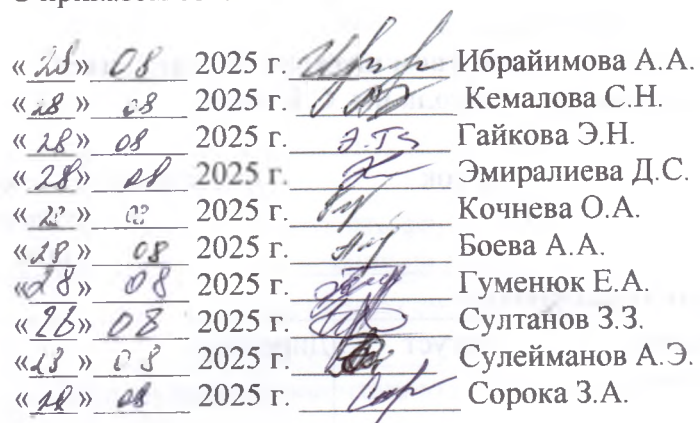 «28» 08 2025 г. Ибраимова А.А.
«28» 08 2025 г. Кемалова С.Н.
«28» 08 2025 г. Гайкова Э.Н.
«28» 08 2025 г. Эмиралиева Д.С.
«28» 08 2025 г. Кочнева О.А.
«28» 08 2025 г. Боева А.А.
«28» 08 2025 г. Гуменюк Е.А.
«28» 08 2025 г. Султанов З.З.
«28» 08 2025 г. Сулейманов А.Э.
«28» 08 2025 г. Сорока З.А.